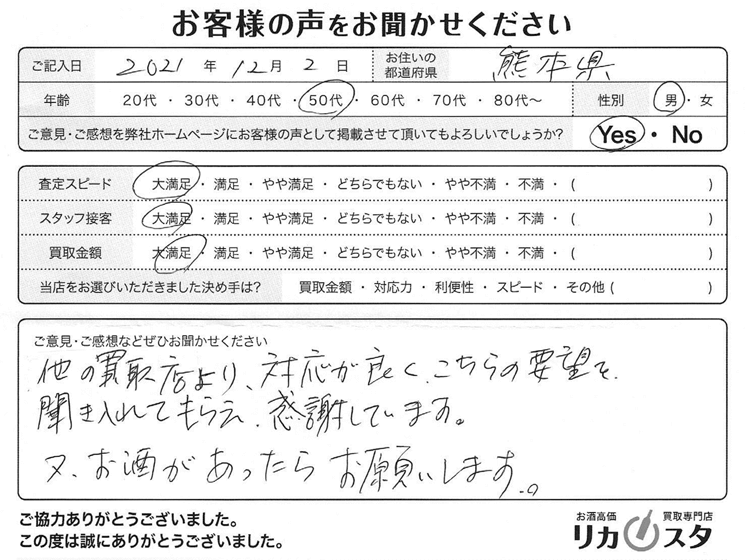 お客様の声をお聞かせください
ご記入日 2021 年 12 月 2 日 お住いの都道府県 熊本県
年齢 20代 ・ 30代 ・ 40代 ・ 50代 ・ 60代 ・ 70代 ・ 80代〜 性別 男 ・ 女
ご意見・ご感想を弊社ホームページにお客様の声として掲載させて頂いてもよろしいでしょうか? Yes ・ No
査定スピード 大満足 ・ 満足 ・ やや満足 ・ どちらでもない ・ やや不満 ・ 不満 ・ ( )
スタッフ接客 大満足 ・ 満足 ・ やや満足 ・ どちらでもない ・ やや不満 ・ 不満 ・ ( )
買取金額 大満足 ・ 満足 ・ やや満足 ・ どちらでもない ・ やや不満 ・ 不満 ・ ( )
当店をお選びいただきました決め手は? 買取金額 ・ 対応力 ・ 利便性 ・ スピード ・ その他 ( )
ご意見・ご感想などぜひお聞かせください
他の買取店より、対応が良く、こちらの要望を
聞き入れてもらえ、感謝しています。
又、お酒があったらお願いします。
ご協力ありがとうございました。
この度は誠にありがとうございました。
お酒高価 買取専門店
リカスタ